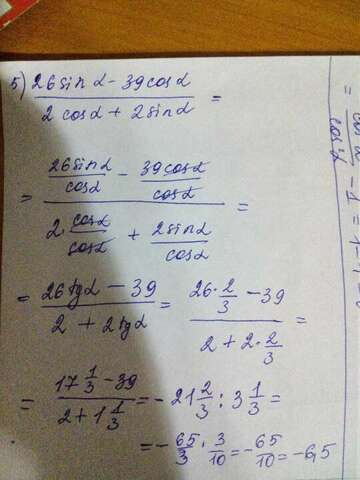 5) (26 sin α - 39 cos α)/(2 cos α + 2 sin α) =
= (26 sin α/cos α - 39 cos α/cos α)/(2 · cos α/cos α + 2 sin α/cos α) =
= (26 tg α - 39)/(2 + 2 tg α) = (26 · 2/3 - 39)/(2 + 2 · 2/3) =
= (17 1/3 - 39)/(2 + 1 1/3) = - 21 2/3 : 3 1/3 =
= - 65/3 · 3/10 = - 65/10 = - 6,5